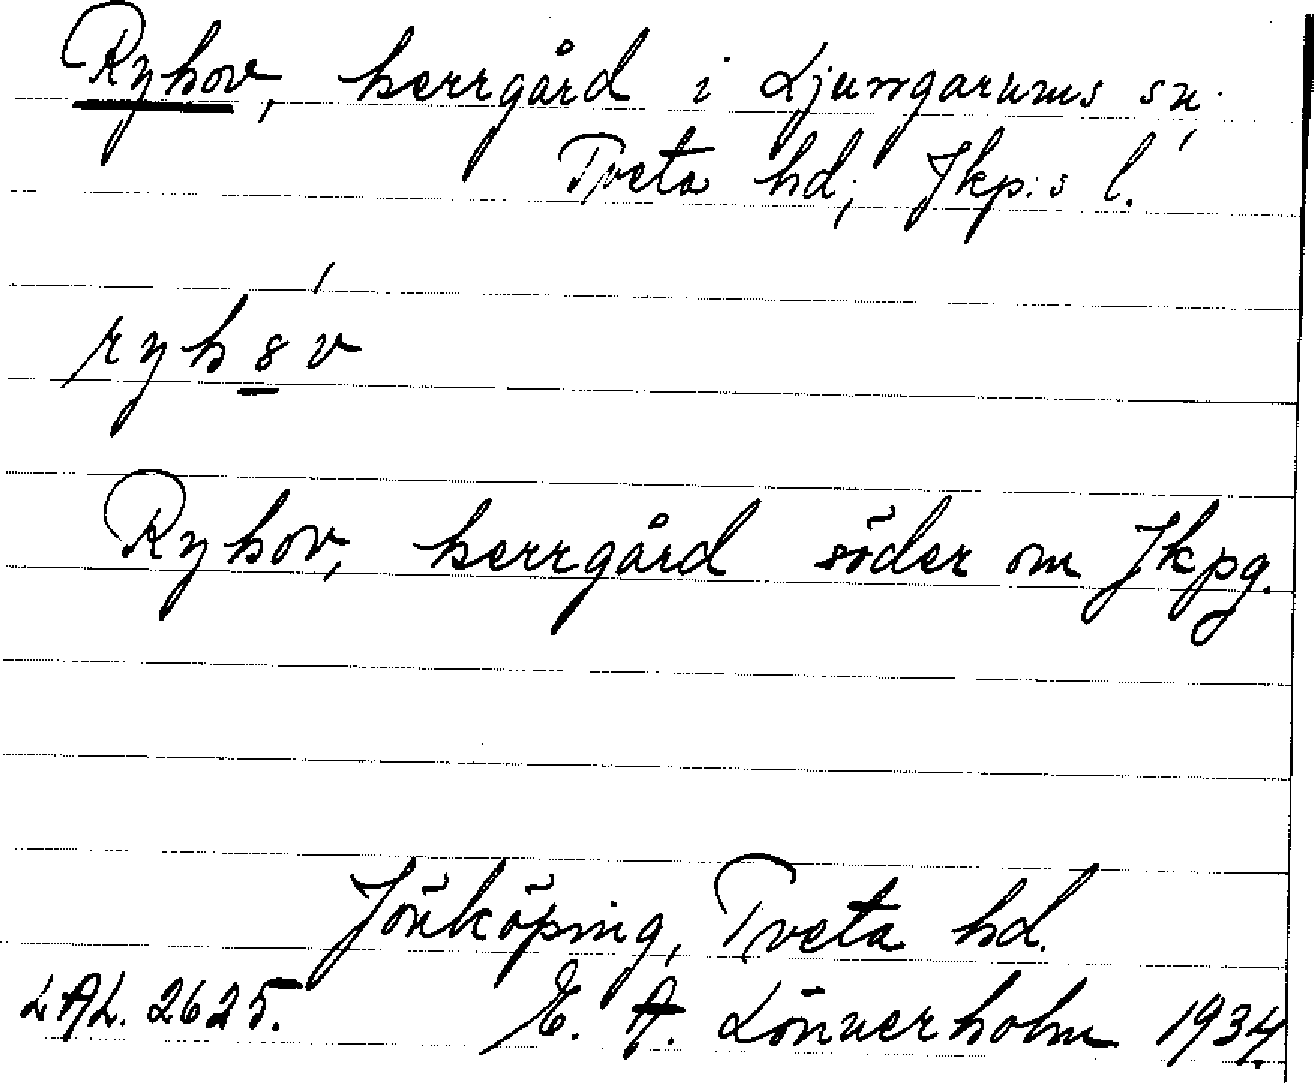 Ryhov, herrgård i Ljungarums sn,
Tveta hd, Jkp:s l.
ryh8v́
Ryhov, herrgård söder om Jkpg.
Jönköping, Tveta hd.
LAL. 2625. E. A. Lönnerholm 1934.